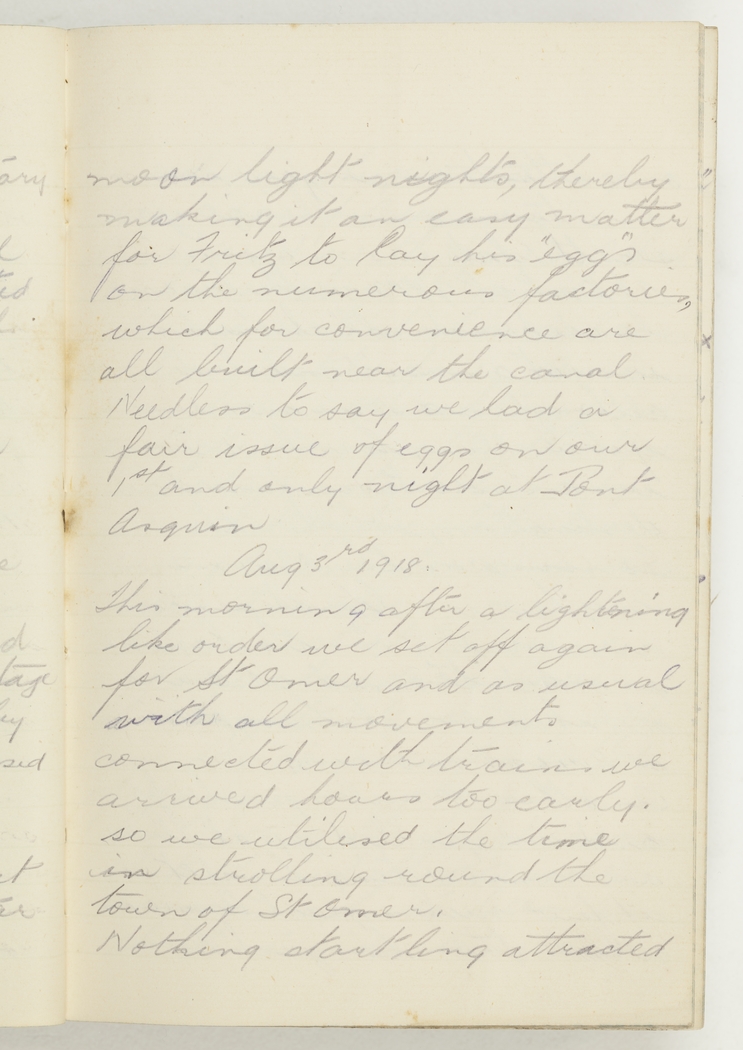 moon light nights, thereby
making it an easy matter
for Fritz to lay his "eggs"
on the numerous factories,
which for convenience are
all built near the canal.
Needless to say we had a
fair issue of eggs on our
1st and only night at Pont
Asquin
Aug 3rd 1918.
This morning after a lightening
like order we set off again
for St Omer and as usual
with all movements
connected with trains we
arrived hours too early.
so we utilised the time
in strolling round the
town of St Omer.
Nothing startling attracted